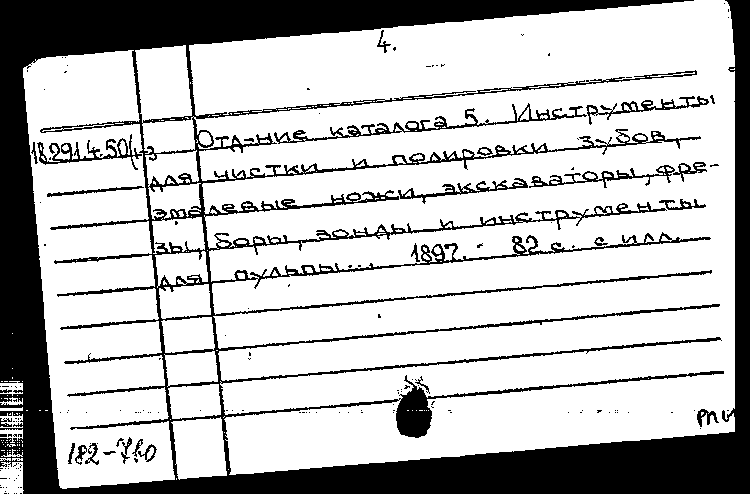 4.
18.291.4.50/1-3 Отд-ние каталога 5. Инструменты
для чистки и полировки зубов,
эмалевые ножи, экскаваторы, фре-
зы, боры, зонды и инструменты
для пульпы... 1897. - 82 с. с илл.
182-760